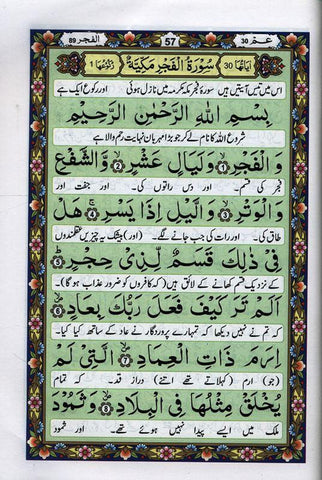 عـمّ 30 57 الفجر 89
اٰيَاتُهَا 30 سُوْرَةُ الْفَجْرِ مَكِّيَّةٌ رُكُوْعُهَا 1
اس میں تیس آیتیں ہیں سورۂ فجر مکہ مکرمہ میں نازل ہوئی اور رکوع ایک ہے
بِسْمِ اللهِ الرَّحْمٰنِ الرَّحِيْمِ
شروع اللہ کا نام لے کر جو بڑا مہربان نہایت رحم والا ہے
وَ الْفَجْرِ ۙ﴿1﴾ وَ لَيَالٍ عَشْرٍ ۙ﴿2﴾ وَّ الشَّفْعِ
فجر کی قسم۔ اور دس راتوں کی۔ اور جفت اور
وَ الْوَتْرِ ۙ﴿3﴾ وَ الَّيْلِ اِذَا يَسْرِ ۚ﴿4﴾ هَلْ
طاق کی۔ اور رات کی جب جانے لگے۔ (اور) بیشک یہ چیزیں عقلمندوں
فِيْ ذٰلِكَ قَسَمٌ لِّذِيْ حِجْرٍ ؕ﴿5﴾
کے نزدیک قسم کھانے کے لائق ہیں (کہ کافروں کو ضرور عذاب ہو گا)۔
اَلَمْ تَرَ كَيْفَ فَعَلَ رَبُّكَ بِعَادٍ ۙ﴿6﴾
کہ تم نے نہیں دیکھا کہ تمہارے پروردگار نے عاد کے ساتھ کیا کیا۔
اِرَمَ ذَاتِ الْعِمَادِ ۙ﴿7﴾ الَّتِيْ لَمْ
(جو) ارم (کہلاتے تھے اتنے) دراز قد۔ کہ تمام
يُخْلَقْ مِثْلُهَا فِي الْبِلَادِ ۙ﴿8﴾ وَ ثَمُوْدَ
ملک میں ایسے پیدا نہیں ہوئے تھے۔ اور ثمود